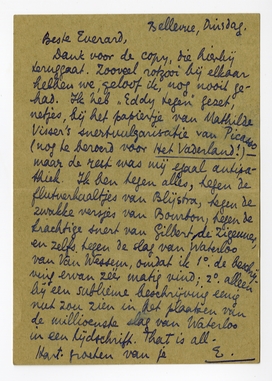 Bellevue, Dinsdag.
Beste Everard,
Dank voor de copy, die hierbij
teruggaat. Zooveel rotzooi bij elkaar
hebben we, geloof ik, nog nooit ge-
had. Ik heb Eddy tegen gezet,
netjes, bij het papiertje van Mathilde
Visser's snertvulgarisatie van Picasso
(nog te beroerd voor Het Vaderland!) —
maar de rest was mij egaal antipa-
thiek. Ik ben tegen alles, tegen de
flutverhaaltjes van Blijstra, tegen de
zwakke versjes van Bourbon, tegen de
krachtige snert van Gilbert, de Zigeuner,
en zelfs tegen de slag van Waterloo
van Van Wessem, omdat ik 1º. de beschrij-
ving ervan zéér matig vind; 2º. alleen
bij een sublieme beschrijving eenig
nut zou zien in het plaatsen van
de millioenste slag van Waterloo
in een tijdschrift. That is all.
Hart. groeten van je
E.